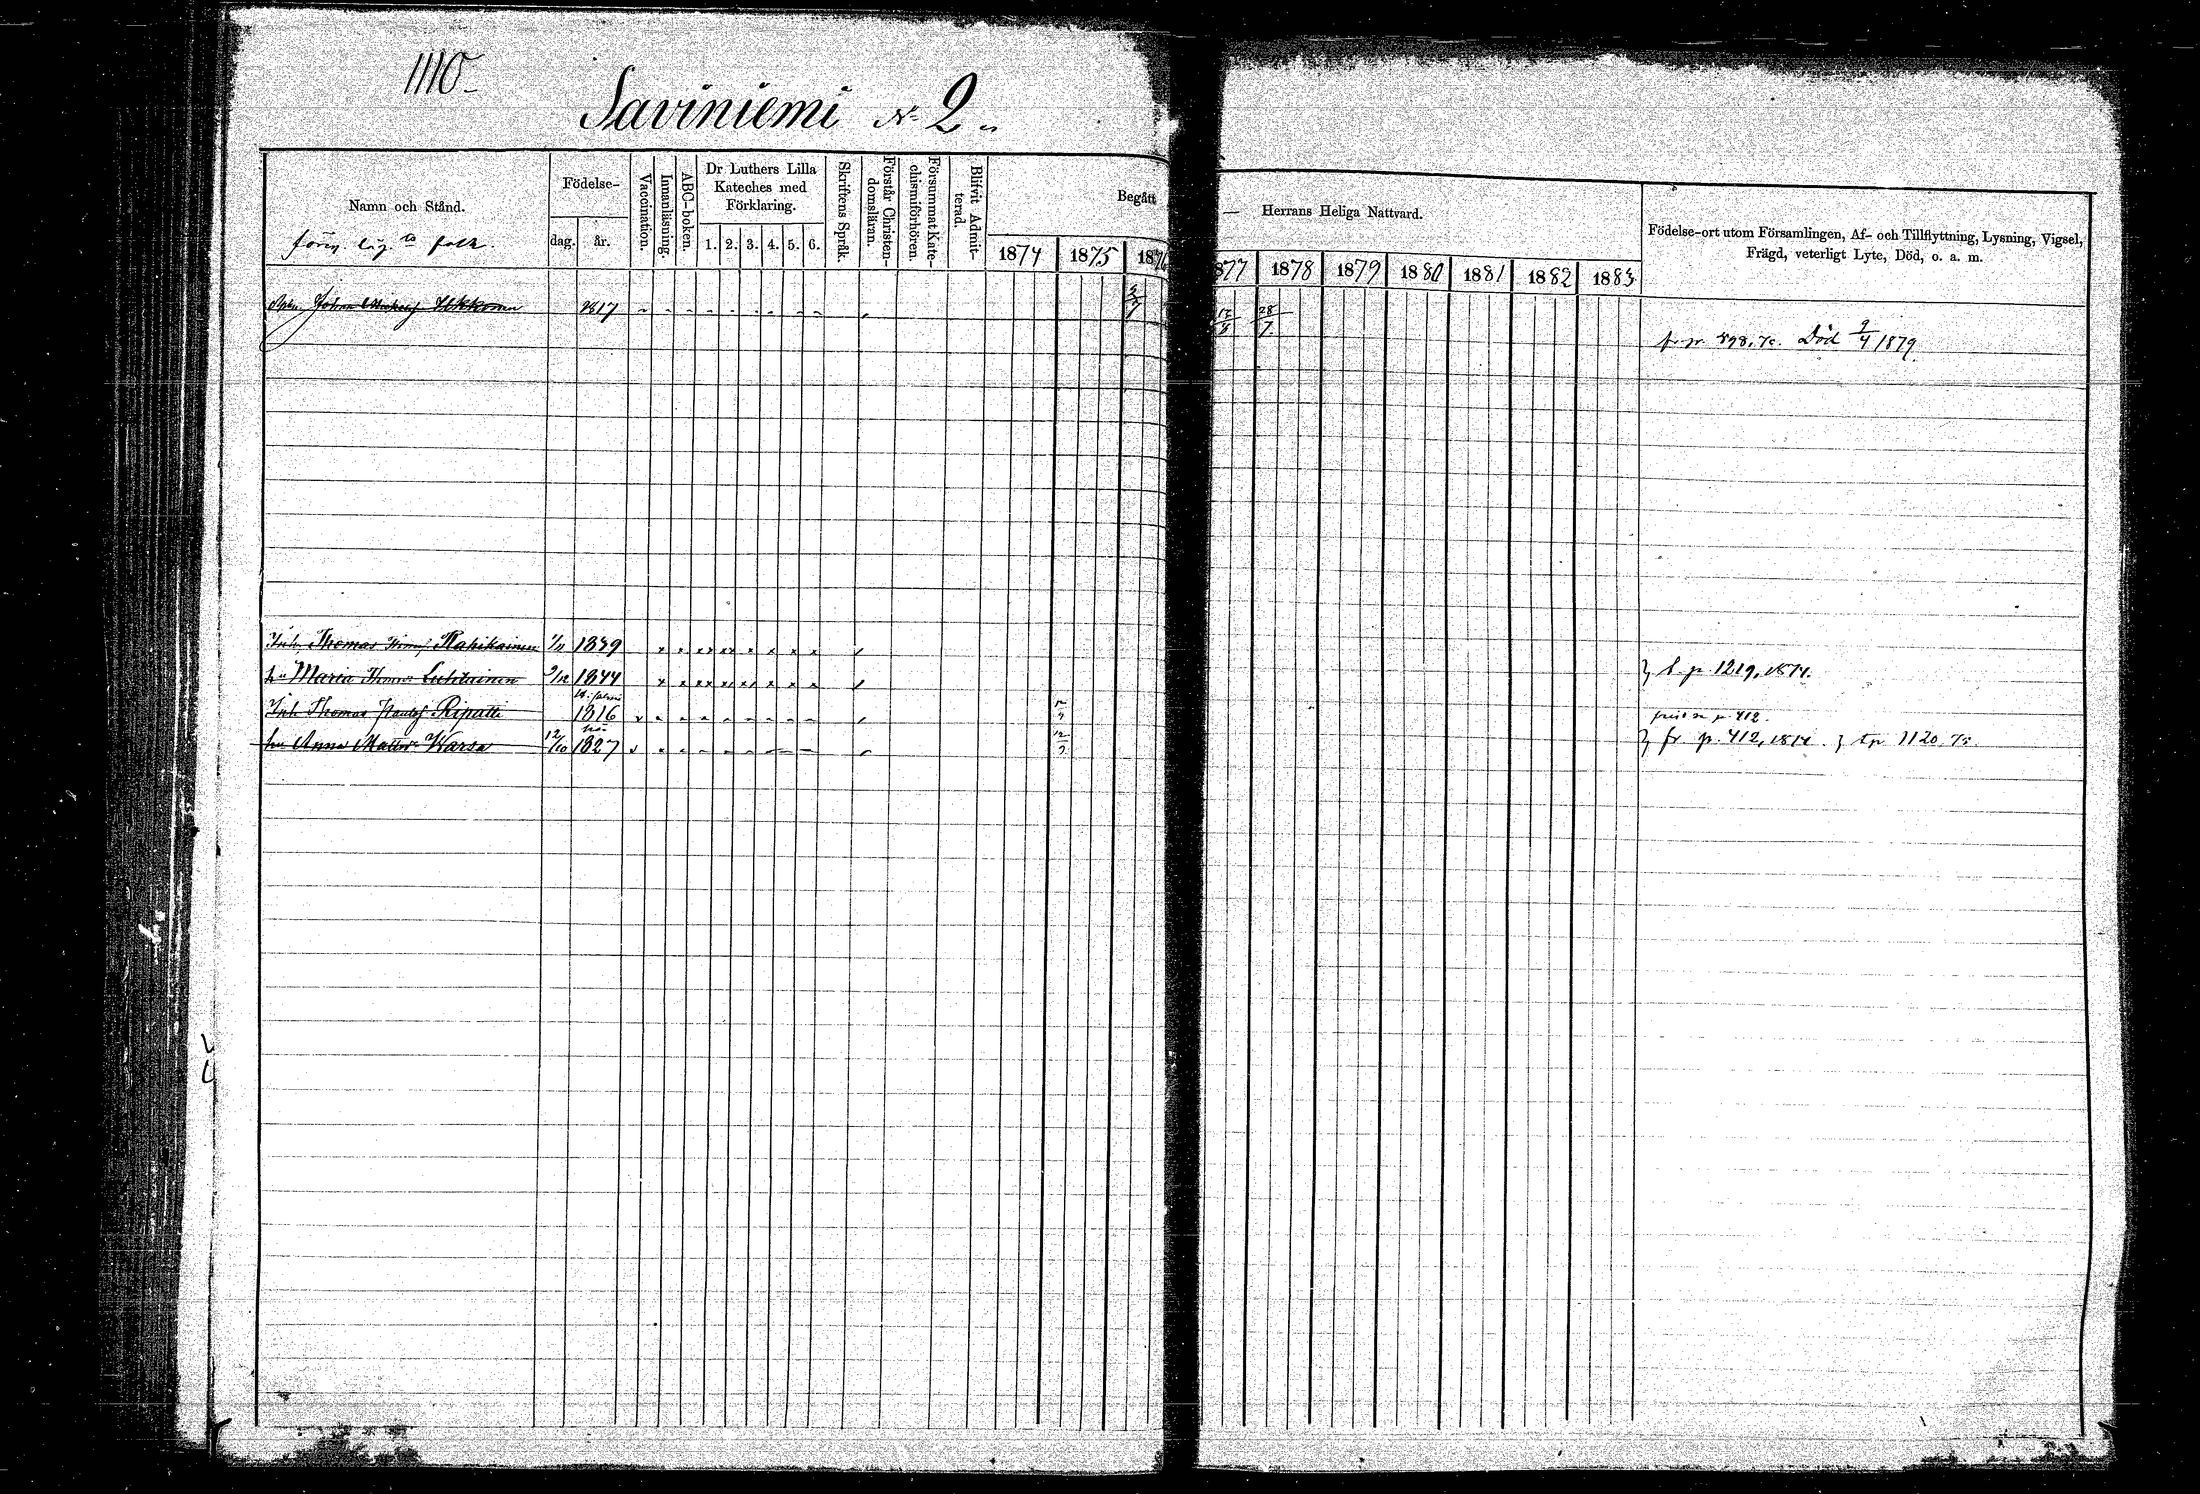 1110
Saviniemi № 2
Namn och Stånd.
Födelse-
dag.
år.
Vaccination.
Innanläsning.
ABC-boken.
Dr Luthers Lilla
Kateches med
Förklaring.
1. 2. 3. 4. 5. 6.
Skriftens Språk.
Förstår Christen-
domsläran.
Försummat Kate-
chismiförhören.
Blifvit Admit-
terad.
Begått — Herrans Heliga Nattvard.
1874 1875 1876 1877 1878 1879 1880 1881 1882 1883
Födelse-ort utom Församlingen, Af- och Tillflyttning, Lysning, Vigsel,
Frägd, veterligt Lyte, Död, o. a. m.
Johan Ukkonen 1817 17/8 28/7 Död 9/4 1879.
Inh. Thomas Rahikainen 1/11 1839
hu Maria Luhtainen 1844 p 1219, 1874.
Inh. Thomas Ripatti 1816 p 412.
hu Anna Warsa 12/10 1827 12/9 fr p. 412, 1874. tp 1120. 75.